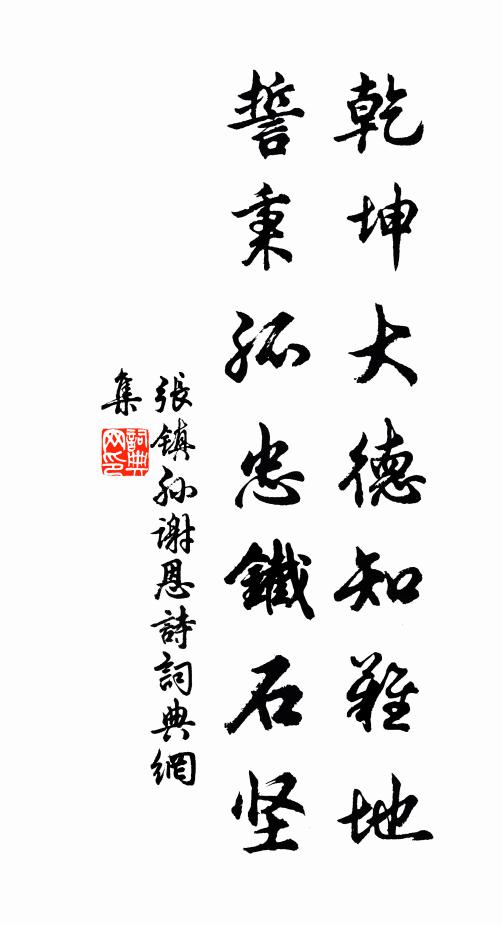 乾坤大德知難地
誓秉孤忠鐵石坚
張鎮孙謝恩詩詞典網
集
詞典
网印